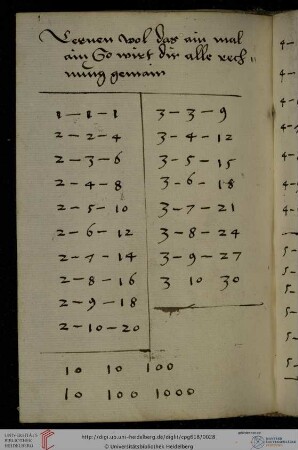 Lernen wol das ain mal
ain So wirt dir alle rech=
nung gemain
1 - 1 - 1
2 - 2 - 4
2 - 3 - 6
2 - 4 - 8
2 - 5 - 10
2 - 6 - 12
2 - 7 - 14
2 - 8 - 16
2 - 9 - 18
2 - 10 - 20
3 - 3 - 9
3 - 4 - 12
3 - 5 - 15
3 - 6 - 18
3 - 7 - 21
3 - 8 - 24
3 - 9 - 27
3 10 30
10 10 100
10 100 1000
4-
4-
4-
4-
UNIVERSITÄTS-
BIBLIOTHEK
HEIDELBERG
© Universitätsbibliothek Heidelberg